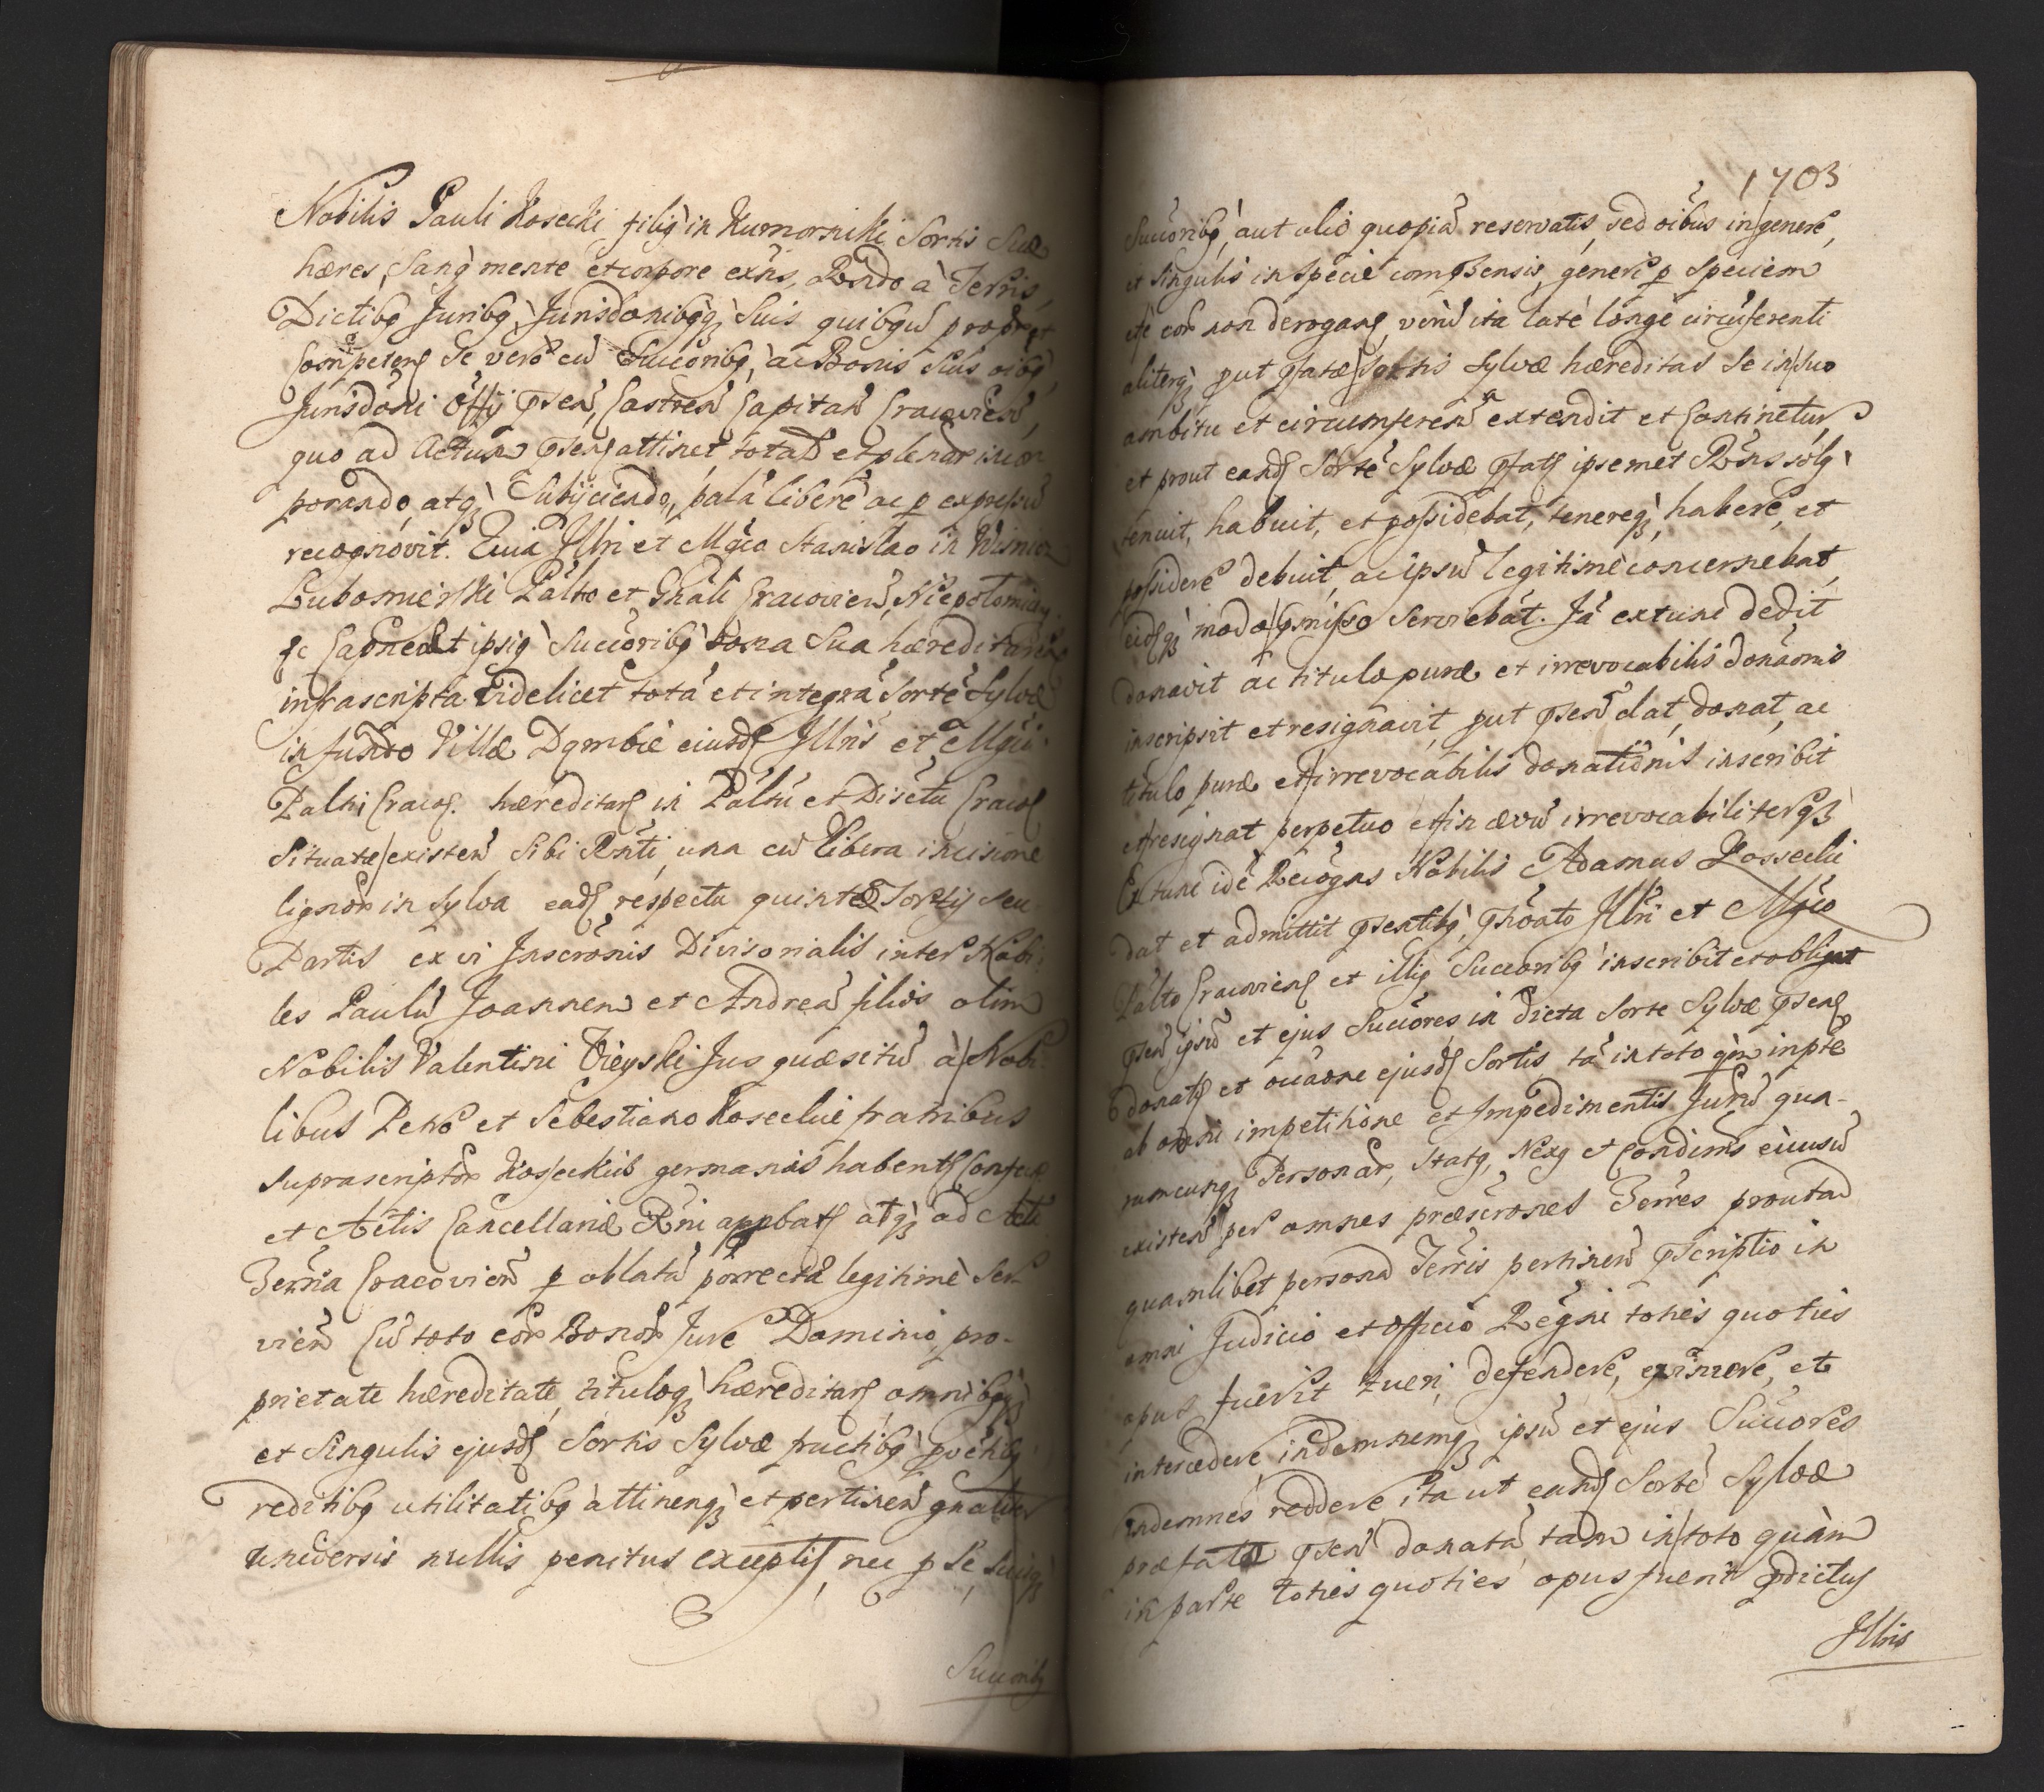 Nobilis Pauli Kosecki filiq in Kumorniki Sortis Suæ
hæres, Sanq mente et corpore exn̄s, Rn̄do à Terris,
Dictibq Juribq, Jurisdōnibqq Suis quibqw propr et
Competen Se verō cū Succōribq, ac Bonis suis oībq,
Jurisdōni Offij pn̄sen, Castren̄ Capitan̄ Cracovien̄,
quo ad Actum pn̄sen attinet total̄r et plenar incor
porando, atq Subijciendo, palā liberè ac p expressū
recognovit. Quia Illri et Mgco Stanislao in Wisnicz
Lubomierski Palto et Gn̄ali Cracovien̄, Niepolomicen̄
&c Capneo et ipsiq Succōribq bona Sua hæreditaria
infrascripta Videlicet totā et integrā Sortē Sylvæ
in fundo Villæ Dąmbie eiusd Illris et Mgci
Palti Cracov. hæreditar in Paltu et Districtu Cracov
Situatæ existen̄ Sibi Rn̄ti una cū libera incisione
lignor in Sylva ead respectu quintæ Sortis seu
Partis ex vi Inscrōnis Divisorialis inter Nobi
les Paulū Joannem et Andreā filios olim
Nobilis Valentini Vieyski Jus quæsitū à Nobi
libus Petro et Sebestiano Koseckie fratribus
Suprascriptor Kosseckiis germanis haben Confectæ
et Actis Cancellariæ Rn̄i appbat atq ad Acta
Terria Cracovien̄ p oblatā porrectā legitimè Ser
vien̄ Cū toto eor Bonor Jure Dominio, pro-
prietate hæreditate, tituloq hæreditar omnibqq
et Singulis ejusd Sortis Sylvæ fructibq pvētibq
reditibq utilitatibq attinenq et pertinen̄ gn̄aliter
universis nullis penitus exceptis, nec p Se, Suisq
Succōribq
1703
Succōribq, aut alio quopiā reservatis, sed oībus in genere,
et Singulis in Specie compn̄ensis, generē p Speciem
etc eor non derogan, verū ita latè longè circūferenti
aliterq put pfatæ Sortis Sylvæ hæreditas Se in Suo
ambitu et circumferen̄a extendit et Continetur,
et prout eand Sortē Sylvæ pfat ipsemet Rn̄s solq
tenuit, habuit, et possidebat, tenereq, habere, et
possidere debuit, ac ipsū legitimè concernebat,
eidq modo pmisso Serviebat. Jā ex tunc dedit
donavit ac titulo puræ et irrevocabilis donaōnis
inscripsit et resignavit, put pn̄sen̄ dat, donat, ac
titulo puræ et irrevocabilis donationis inscribit
et resignat perpetuo et in ævū irrevocabiliterq
Ex tunc idē Recogns Nobilis Adamus Kossecki
dat et admittit pn̄sentibq, phōato Illri et Mgco
Palto Cracovien et illiq Succōribq inscribit et obligat
pn̄sen̄ ipsū et ejus Succōres in dicta Sorte Sylvæ pn̄sen
donat et occāone ejusd Sortis tā in toto qm̄ in pte
ab omni impetitione et Impedimentis Jurū qua-
rumcunq Personar, Statq, Nexq et Condīnis cuiusū
existen̄ per omnes præscrōnes Terres prout ad
quamlibet personā Terris pertinen̄ pscriptio in
omni Judicio et officio Regni toties quoties
opus fuerit tueri, defendere, eximere, et
intercedere indemnemq ipsū et ejus Succōres
indemnes reddere ita ut eand Sortē Sylvæ
præfatæ pn̄sen̄ donatā tam in toto quàm
in parte toties quoties opus fuerit pdictus
Illris